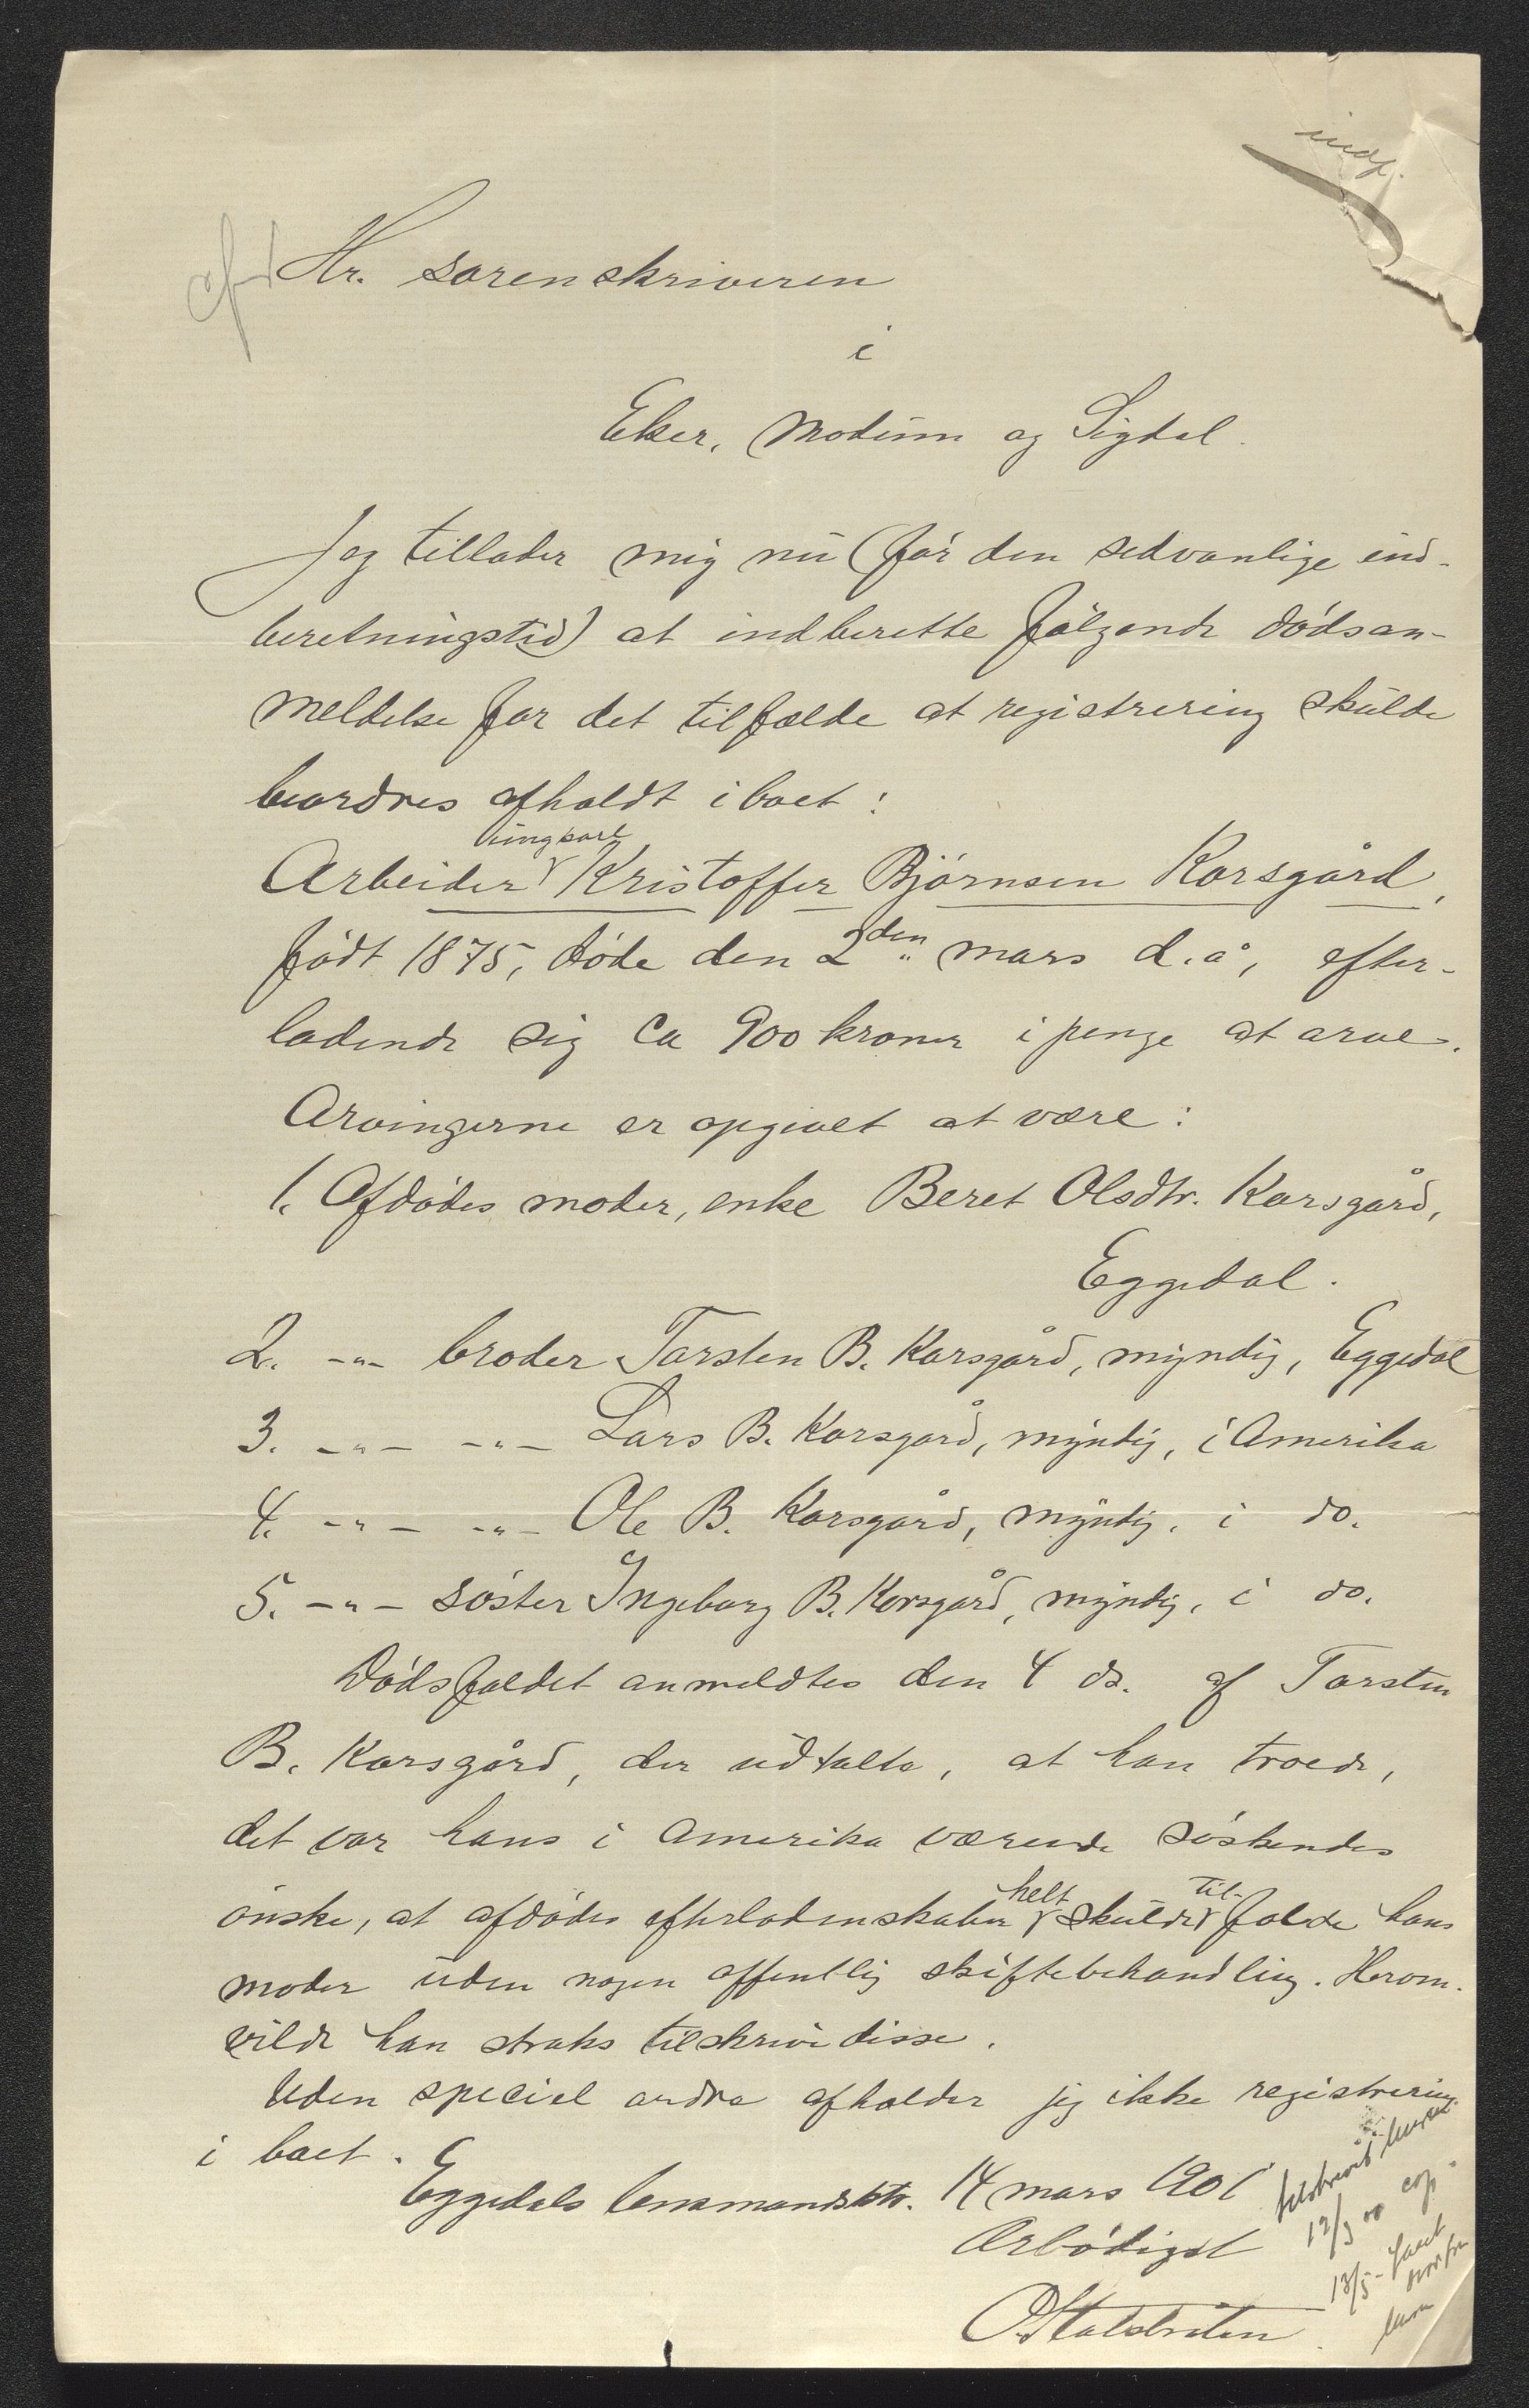 indf.
Hr. sorenskriveren
i
Eker, Modum og Sigdal.
Jeg tillader mig nu (før den sedvanlige ind-
beretningstid) at indberette følgende dødsan-
meldelse for det tilfælde at registrering skulde
beordres afholdt i boet:
ungkarl
Arbeider Kristoffer Bjørnsen Korsgård,
født 1875, døde den 2den mars d.å, efter-
ladende sig ca 900 kroner i penge at arve.
Arvingerne er opgivet at være:
1. Afdødes moder, enke Beret Olsdtr. Korsgård,
Eggedal.
2. -"- broder Torsten B. Korsgård, myndig, Eggedal
3. -"- -"- Lars B. Korsgård, myndig, i Amerika
4. -"- -"- Ole B. Korsgård, myndig, i do.
5. -"- søster Ingeborg B. Korsgård, myndig, i do.
Dødsfaldet anmeldtes den 4 ds. af Torsten
B. Korsgård, der udtalte, at han troede,
det var hans i Amerika værende søskendes
helt til-
ønske, at afdødes efterladenskaber skulde falde hans
moder uden nogen offentlig skiftebehandling. Herom
vilde han straks tilskrive disse.
Uden speciel ordre afholder jeg ikke registrering
i boet.
Eggedals lensmandsktr. 14 mars 1901
Ærbødigst
tilskrevet
cop.
13/5-